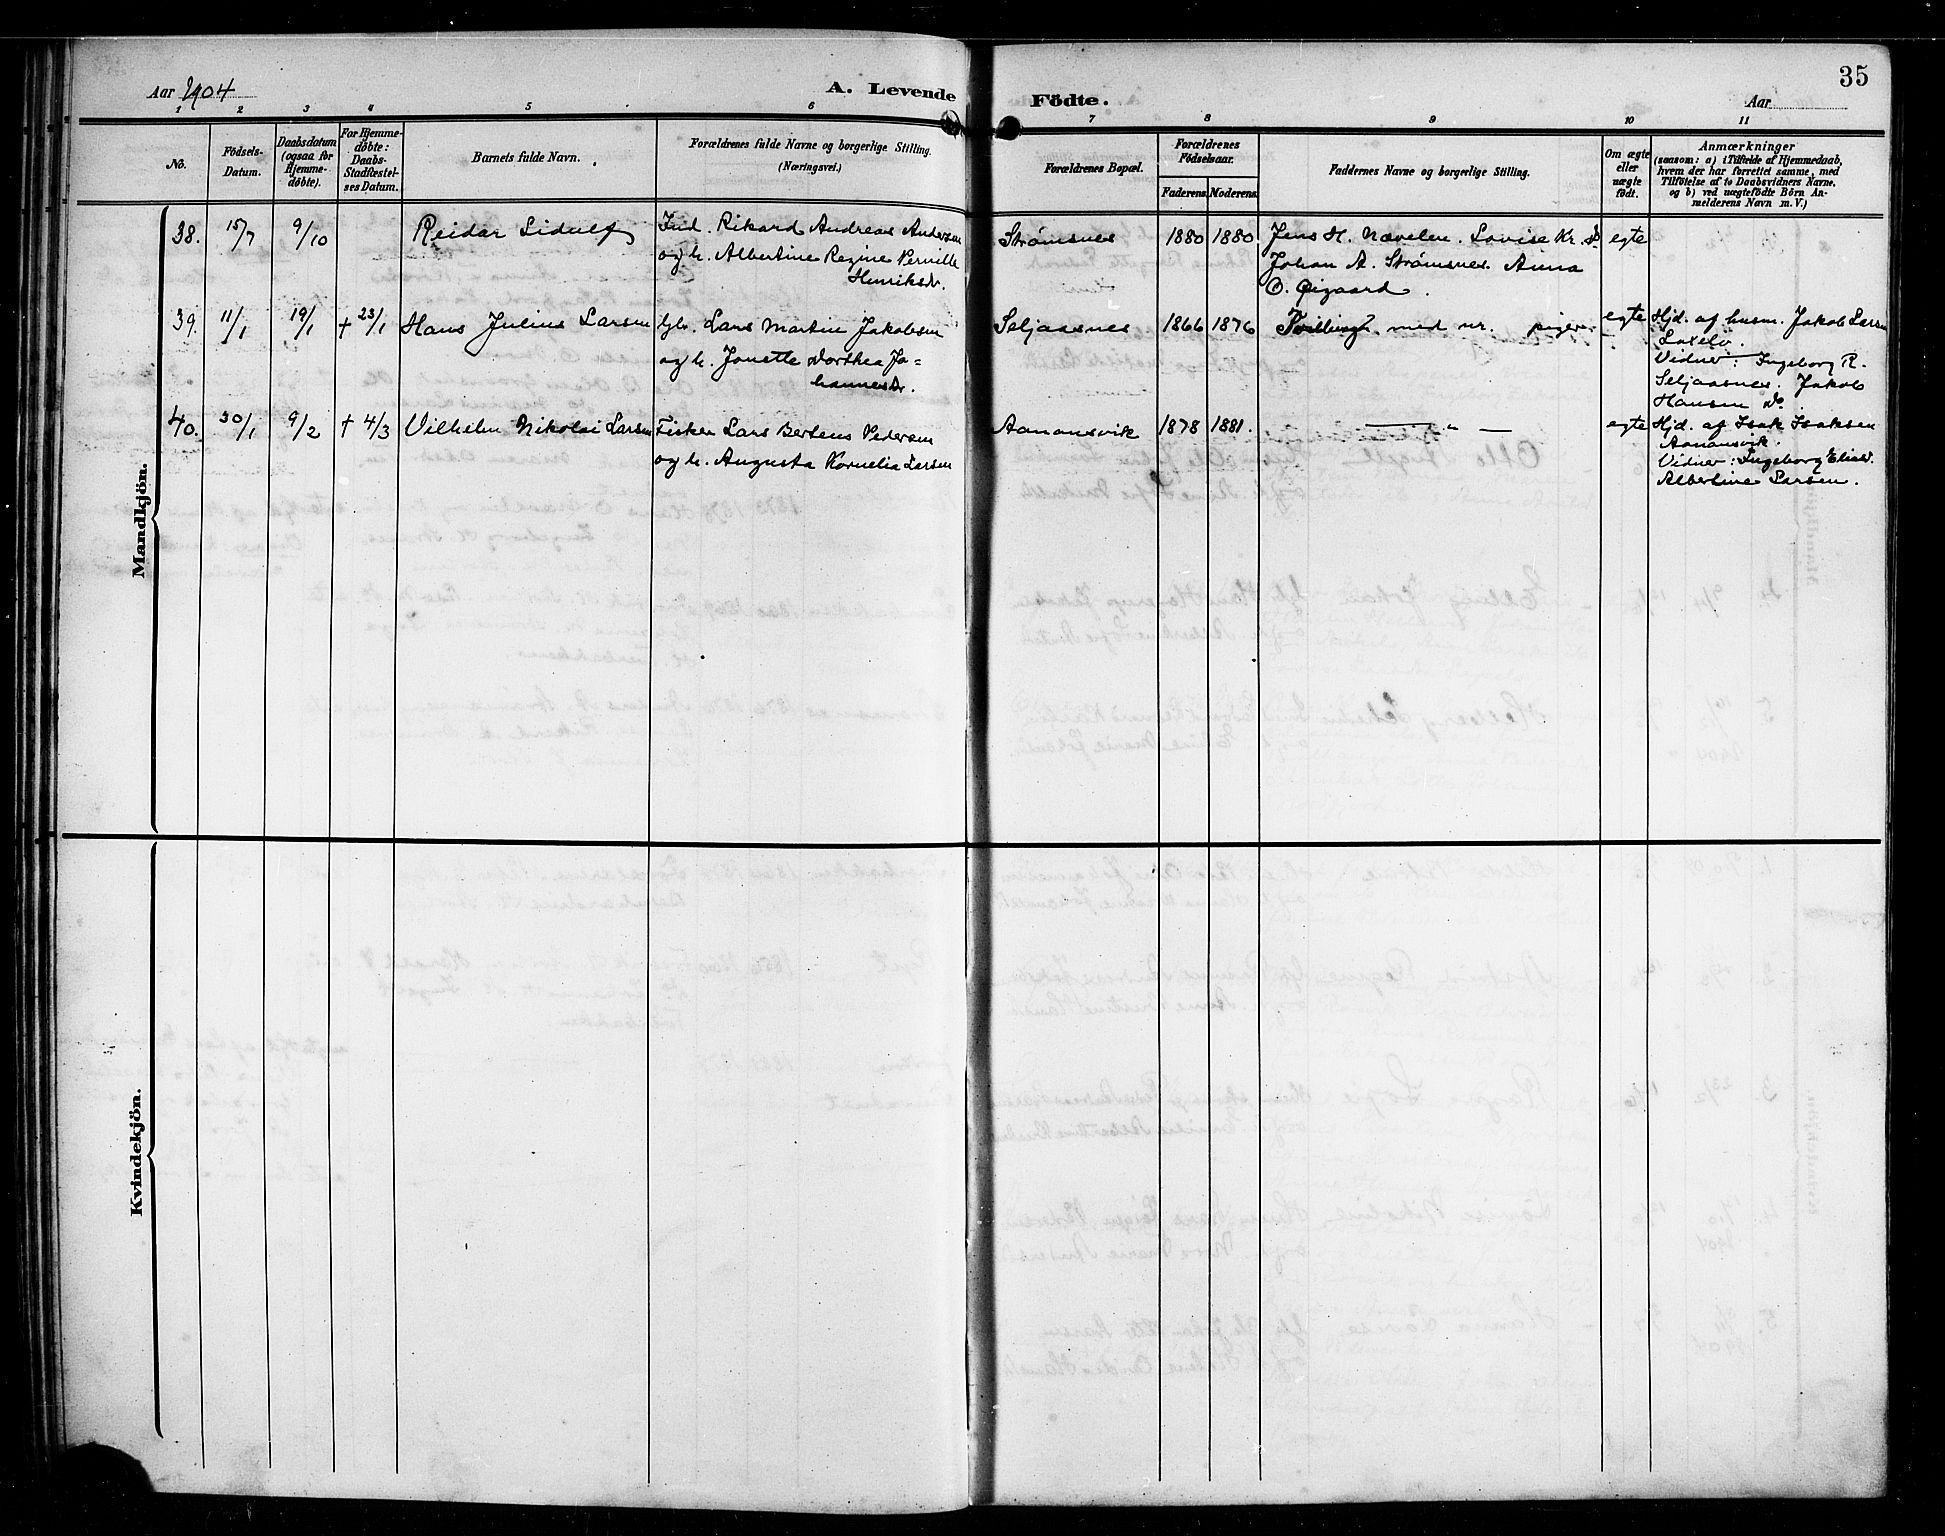 Aar 1904
A. Levende
Födte.
Aar
35
1 2 3 4 5 6 7 8 9 10 11
No.
Födsels-
Datum.
Daabsdatum
(ogsaa for
Hjemme-
døbte).
For Hjemme-
døbte:
Daabs-
Stadfæstel-
ses Datum.
Barnets fulde Navn.
Forældrenes fulde Navne og borgerlige Stilling.
(Næringsvei.)
Forældrenes Bopæl.
Forældrenes
Födselsaar.
Faderens. Moderens.
Faddernes Navne og borgerlige Stilling.
Om ægte
eller
uægte
födt.
Anmærkninger
(saasom: a) i Tilfælde af Hjemmedaab,
hvem der har forrettet samme, med
Tilföielse af to Daabsvidners Navne,
og b) ved uægtefödte Börn An-
melderens Navn m. V.)
Mandkjön.
38. 15/7 9/10 Reidar Sidulf
Ind. Rikard Andreas Andersen
og h. Albertine Regine Pernille
Henriksdr.
Strømsnes 1880 1880
Jens H. Nævelen. Lovise Kr.
Johan A. Strømsnes. Anna
O. Øigaard.
egte
39. 11/1 19/1 + 23/1 Hans Julius Larsen
Gbr. Lars Martin Jakobsen
og h. Jonette Dorthea Jo-
hannesdr.
Seljaasnes 1866 1876
Tvilling med nr. piger
egte
Hjd. af husm. Jakob Larsen
Laxelv.
Vidner: Ingeborg R.
Seljaasnes. Jakob
Hansen do.
40. 30/1 9/2 + 4/3 Vilhelm Nikolai Larsen
Fisker Lars Bertens Pedersen
og h. Augusta Kornelia Larsen
Aanansvik 1878 1881.
— " —
egte
Hjd. af Isak Isaksen
Aanansvik.
Vidner: Ingeborg Eliasd.
Albertine Larsen.
Kvindekjön.